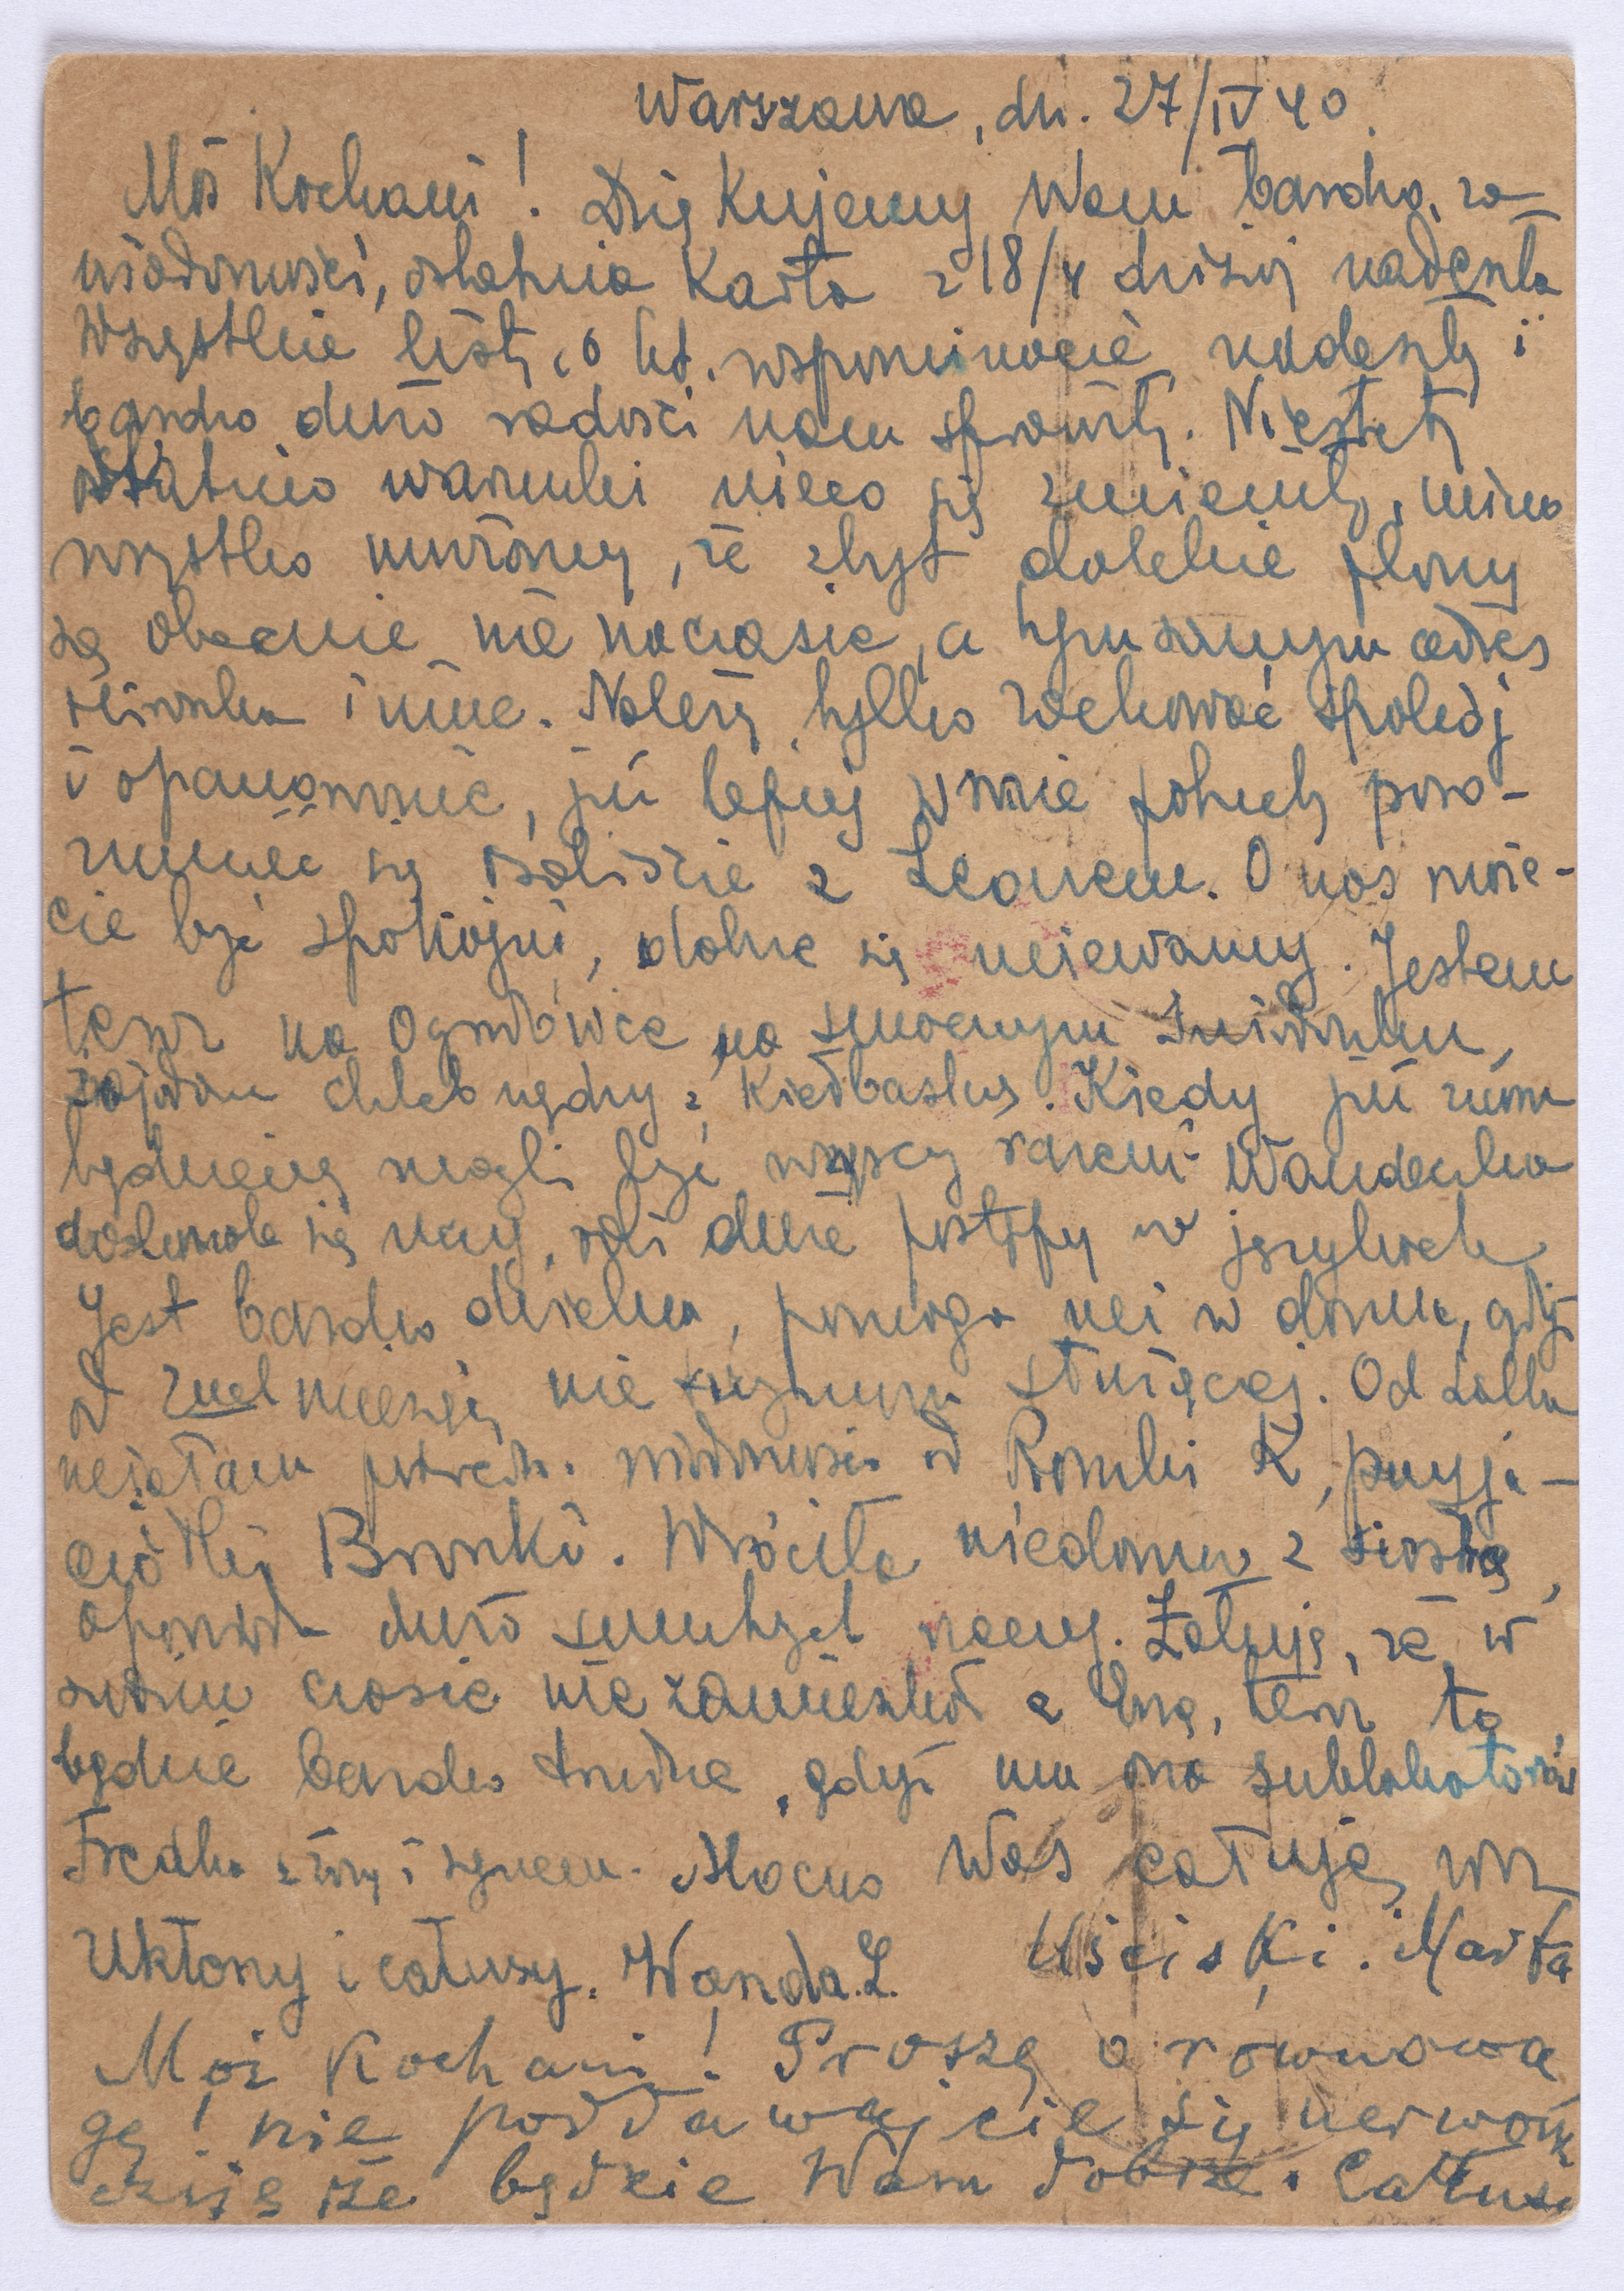 Warszawa, dn. 27/IV 40.
Moi Kochani! Dziękujemy Wam bardzo za
wiadomości, ostatnia karta z 18/4 dzisiaj nadeszła
Wszystkie listy, o kt. wspominacie, nadeszły i
bardzo dużo radości nam sprawiły. Niestety
ostatnio warunki nieco się zmieniły, mimo
wszystko uważamy, że zbyt dalekie plany
są obecnie nie na czasie, a tym samym adres
i inne. Należy tylko zachować spokój
i opanowanie, już lepiej w razie potrzeby poro-
zumieć się osobiście z Leonem. O nas może-
cie być spokojni, dobrze się miewamy. Jestem
teraz na Ogrodówce na smacznym śniadaniu,
zajadam chleb wędzy z kiełbaską. Kiedy już razem
będziemy mogli być wszyscy razem? Wandeczka
doskonale się uczy, robi duże postępy w językach
Jest bardzo dzielna, pomaga mi w domu, gdyż
od 2 miesięcy nie trzymam służącej. Od
miałam pośredn. wiadomość od Romki R, przyja-
ciółki Bronki. Wróciła niedawno z siostrą,
opowiada dużo smutnych rzeczy. Żałuję, że w
swoim czasie nie zamieszkał z , teraz to
będzie bardzo trudne, gdyż ma ona sublokatorów
Fredka z żoną i synem. Mocno Was całuję, wraz
Ukłony i całusy. Wanda. L. Uściski. Marta
Moi Kochani! Proszę o równowa
gę! nie poddawajcie się nerwom
czuję że będzie Wam dobrze. Całusy